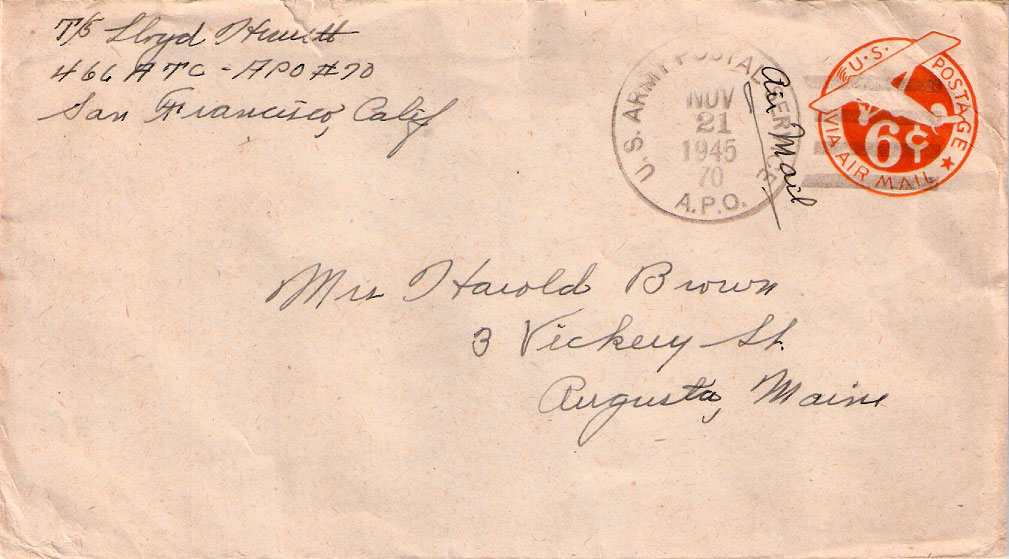 T/5 Lloyd Hewitt
466 ATC - APO #70
San Francisco, Calif
U.S. ARMY POSTAL SERVICE
NOV
21
1945
70
A.P.O.
Air Mail
U.S. POSTAGE
6¢
VIA AIR MAIL
Mrs Harold Brown
3 Vickery St.
Augusta, Maine